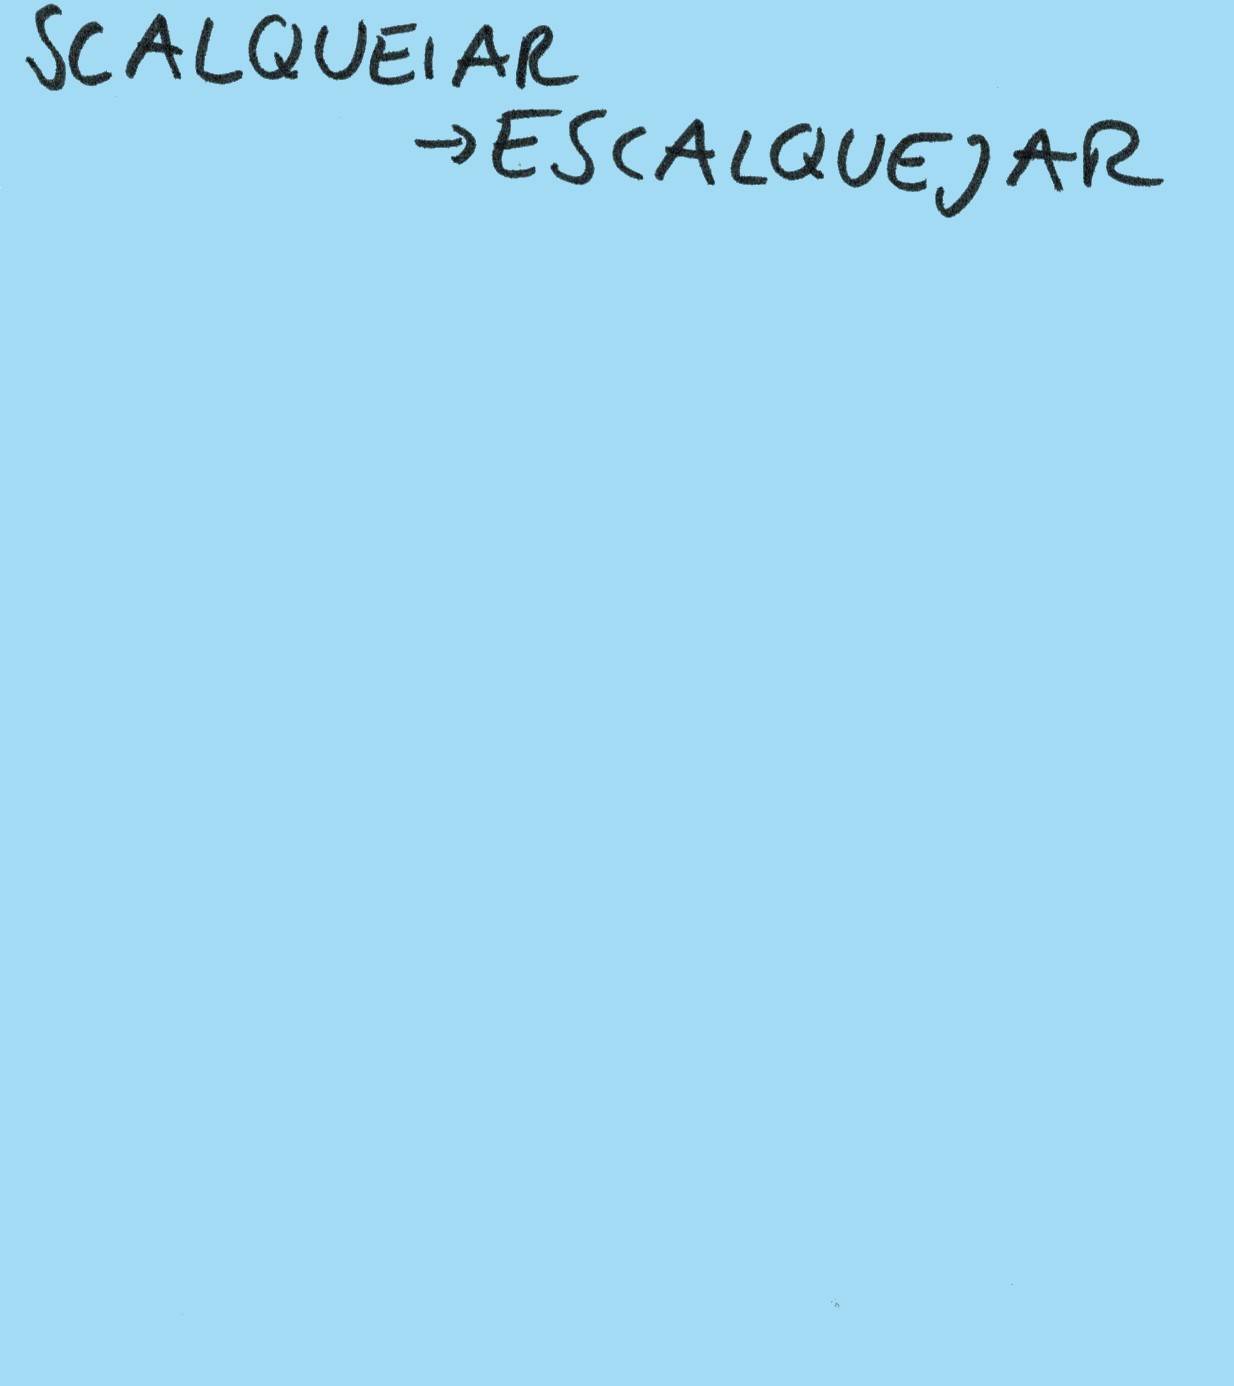 SCALQUEIAR
→ESCALQUEJAR